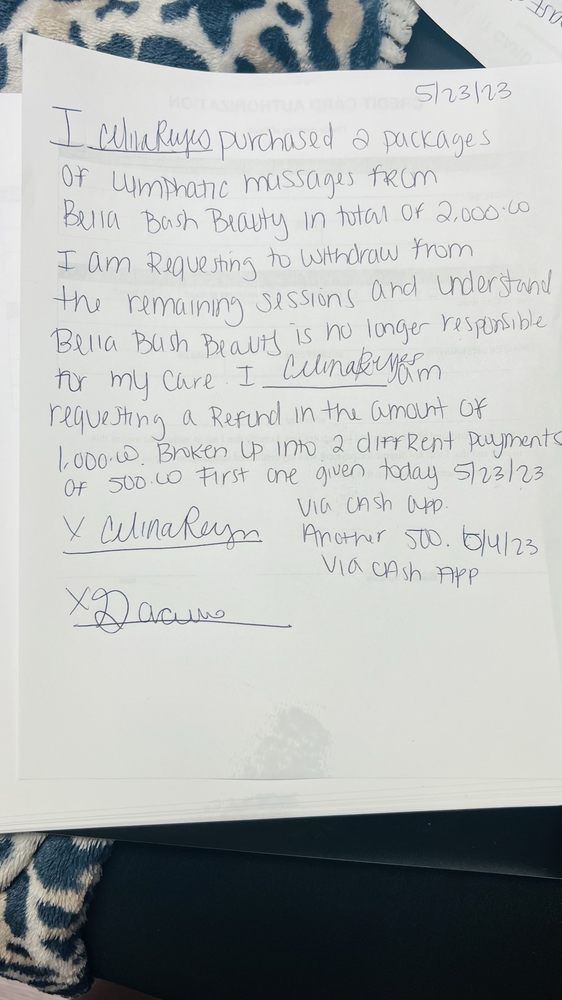 5/23/23
I Celina Reyes purchased 2 packages
of Lymphatic massages from
Bella Bash Beauty in total of 2,000.00
I am Requesting to withdraw from
the remaining sessions and understand
Bella Bash Beauty is no longer responsible
for my care. I Celina Reyes am
requesting a Refund in the amount of
1,000.00. Broken up into 2 diffrent payments
of 500.00 First one given today 5/23/23
via cash app.
X Celina Reyes
Another 500. 6/4/23
via cash app
X
CREDIT CARD AUTHORIZATION